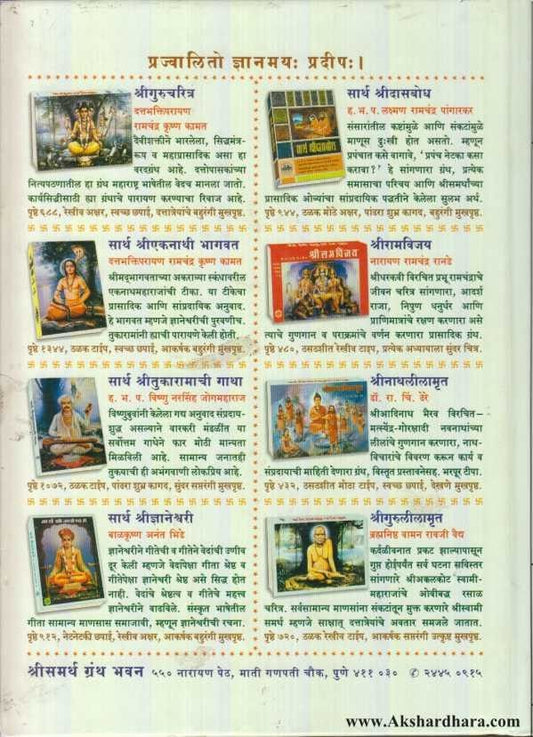 प्रज्वालितो ज्ञानमयः प्रदीपः।
श्रीगुरुचरित्र
दत्तभक्तिपरायण
रामचंद्र कृष्ण कामत
दैवीशक्तीने भारलेला, सिद्धमंत्र-
रूप व महाप्रासादिक असा हा
वरदग्रंथ आहे. दत्तोपासकांच्या
नित्यपठणातील हा ग्रंथ महाराष्ट्र भाषेतील वेदच मानला जातो.
कार्यसिद्धीसाठी ह्या ग्रंथाचे पारायण करण्याचा रिवाज आहे.
पृष्ठे ९८८, रेखीव अक्षर, स्वच्छ छपाई, दत्तात्रेयांचे बहुरंगी मुखपृष्ठ.
सार्थ श्रीएकनाथी भागवत
दत्तभक्तिपरायण रामचंद्र कृष्ण कामत
श्रीमद्भागवताच्या अकराव्या स्कंधावरील
एकनाथमहाराजांची टीका. या टीकेचा
प्रासादिक आणि सांप्रदायिक अनुवाद.
हे भागवत म्हणजे ज्ञानेश्वरीची पुरवणीच.
तुकारामांनी ह्याची पारायणे केली होती.
पृष्ठे १३४४, ठळक टाईप, स्वच्छ छपाई, आकर्षक बहुरंगी मुखपृष्ठ.
सार्थ श्रीतुकारामाची गाथा
ह. भ. प. विष्णु नरसिंह जोगमहाराज
विष्णुबुवांनी केलेला गद्य अनुवाद संप्रदाय-
शुद्ध असल्याने वारकरी मंडळींत या
सर्वोत्तम गाथेने फार मोठी मान्यता
मिळविली आहे. सामान्य जनताही
तुकयाची ही अभंगवाणी लोकप्रिय आहे.
पृष्ठे १०७२, ठळक टाईप, पांढरा शुभ्र कागद, सुंदर सप्तरंगी मुखपृष्ठ.
सार्थ श्रीज्ञानेश्वरी
बाळकृष्ण अनंत भिडे
ज्ञानेश्वरीने गीतेची व गीतेने वेदांची उणीव
दूर केली म्हणजे वेदांपेक्षा गीता श्रेष्ठ व
गीतेपेक्षा ज्ञानेश्वरी श्रेष्ठ असे सिद्ध होत
नाही. वेदांचे श्रेष्ठत्व व गीतेचे महत्त्व
ज्ञानेश्वरीने वाढविले. संस्कृत भाषेतील
गीता सामान्य माणसास समाजावी, म्हणून ज्ञानेश्वरीची रचना.
पृष्ठे ९१२, नेटनेटकी छपाई, रेखीव अक्षर, आकर्षक बहुरंगी मुखपृष्ठ.
सार्थ श्रीदासबोध
ह. भ. प. लक्ष्मण रामचंद्र पांगारकर
संसारांतील कष्टांमुळे आणि संकटांमुळे
माणूस दुःखी होत असतो. म्हणून
प्रपंचात कसे वागावे, 'प्रपंच नेटका कसा
करावा?' हे सांगणारा ग्रंथ, प्रत्येक
समासाचा परिचय आणि श्रीसमर्थांच्या
प्रासादिक ओव्यांचा सांप्रदायिक पद्धतीने केलेला सुलभ अर्थ.
पृष्ठे ९४४, ठळक मोठे अक्षर, पांढरा शुभ्र कागद, बहुरंगी मुखपृष्ठ.
श्रीरामविजय
नारायण रामचंद्र रानडे
श्रीधरकवी विरचित प्रभू रामचंद्राचे
जीवन चरित्र सांगणारा, आदर्श
राजा, निपुण धनुर्धर आणि
प्राणिमात्रांचे रक्षण करणारा असे
त्याचे गुणगान व पराक्रमांचे वर्णन करणारा प्रासादिक ग्रंथ.
पृष्ठे ४८०, ठसठशीत रेखीव टाईप, प्रत्येक अध्यायाला सुंदर चित्र.
श्रीनाथलीलामृत
डॉ. रा. चिं. ढेरे
श्रीआदिनाथ भैरव विरचित–
मत्स्येंद्र-गोरक्षादी नवनाथांच्या
लीलांचे गुणगान करणारा, नाथ-
विचारांचे विवरण करून कार्य व
संप्रदायाची माहिती देणारा ग्रंथ, विस्तृत प्रस्तावनेसह. भरपूर टीपा.
पृष्ठे ४३२, ठसठशीत मोठा टाईप, स्वच्छ छपाई, देखणे मुखपृष्ठ.
श्रीगुरुलीलामृत
ब्रह्मनिष्ठ वामन रावजी वैद्य
कर्दळीवनात प्रकट झाल्यापासून
गुप्त होईपर्यंत सर्व घटना सविस्तर
सांगणारे श्रीअक्कलकोट स्वामी-
महाराजांचे ओवीबद्ध रसाळ
चरित्र. सर्वसामान्य माणसांना संकटांतून मुक्त करणारे श्रीस्वामी
समर्थ म्हणजे साक्षात् दत्तात्रेयांचे अवतार समजले जातात.
पृष्ठे ७२०, ठळक रेखीव टाईप, आकर्षक सप्तरंगी उत्कृष्ट मुखपृष्ठ.
श्रीसमर्थ ग्रंथ भवन ५५० नारायण पेठ, माती गणपती चौक, पुणे ४११ ०३० ✆ २४४५ ०९१५
www.Akshardhara.com